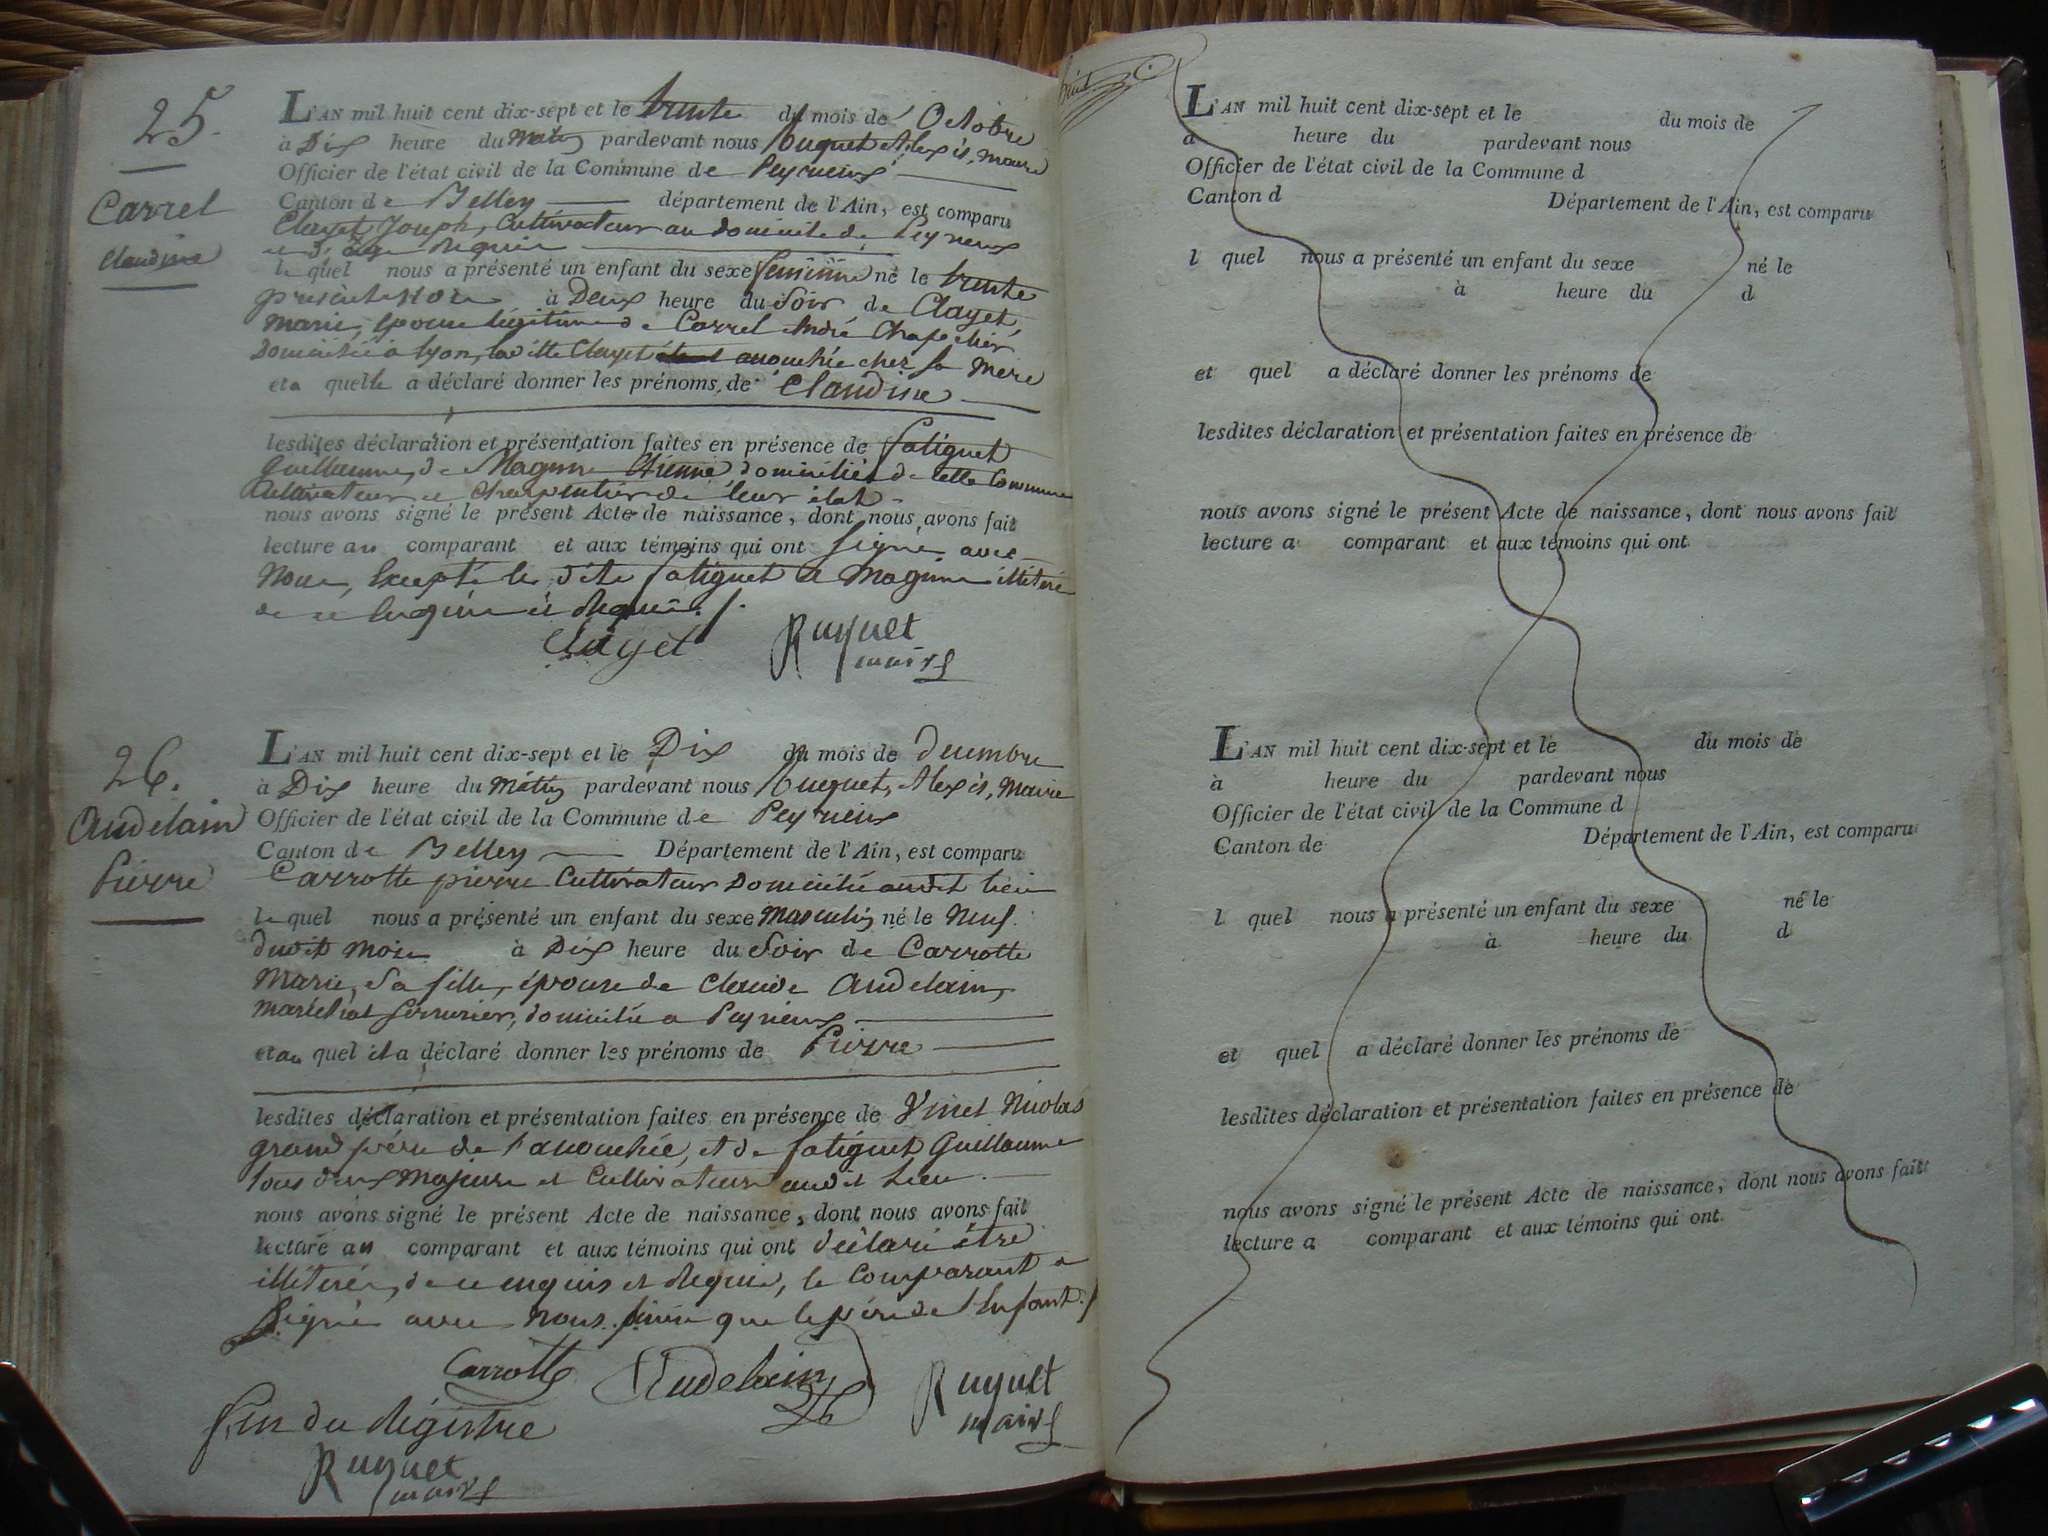 25.
Carrel
Claudine
L'AN mil huit cent dix-sept et le trente du mois de Octobre
à Dix heure du Matin pardevant nous Ruquet Alexis, maire
Officier de l'état civil de la Commune de Peyrieux
Canton de Belley département de l'Ain, est comparu
Clayet Joseph, Cultivateur au domicile de Peyrieux
le quel nous a présenté un enfant du sexe feminin né le trente
à Deux heure du Soir de Clayet
Marie, épouse légitime de Carrel André Chapelier
Domicilié à Lyon, la ditte Clayet accouchée chez sa Mere
et a quelle a déclaré donner les prénoms de Claudine
lesdites déclaration et présentation faites en présence de fatiguet
Guillaume, de Magnin Etienne domiciliés de cette Commune
Cultivateur et Charpentier de leur état
nous avons signé le présent Acte de naissance, dont nous avons fait
lecture au comparant et aux témoins qui ont signé avec
Nous, Excepté les dits fatiguet et Magnin illiteré
de ce Enquis et Requis./.
Clayet Ruquet
maire
26.
Audelain
Pierre
L'AN mil huit cent dix-sept et le Dix du mois de decembre
à Dix heure du Matin pardevant nous Ruquet, Alexis, Maire
Officier de l'état civil de la Commune de Peyrieux
Canton de Belley Département de l'Ain, est comparu
Carrotte pierre Cultivateur Domicilié audit lieu
le quel nous a présenté un enfant du sexe Masculin né le Neuf
dudit Mois à Dix heure du Soir de Carrotte
Marie, sa fille, épouse de Claude Audelain,
Maréchal Serrurier, domicilié a Peyrieux
et au quel il a déclaré donner les prénoms de Pierre
lesdites déclaration et présentation faites en présence de Vinet Nicolas
grand père de l'accouchée, et de fatiguet Guillaume
tous deux Majeurs et Cultivateurs audit Lieu.
nous avons signé le présent Acte de naissance, dont nous avons fait
lecture au comparant et aux témoins qui ont déclaré être
illiterés, de ce enquis et Requis, le Comparant a
Signé avec Nous ainsi que le père de l'Enfant./
Carrotte Audelain Ruquet
maire
fin du Régistre
Ruquet
maire
huit
L'AN mil huit cent dix-sept et le du mois de
a heure du pardevant nous
Officier de l'état civil de la Commune d
Canton d Département de l'Ain, est comparu
l quel nous a présenté un enfant du sexe né le
à heure du d
et quel a déclaré donner les prénoms de
lesdites déclaration et présentation faites en présence de
nous avons signé le présent Acte de naissance, dont nous avons fait
lecture a comparant et aux témoins qui ont
L'AN mil huit cent dix-sept et le du mois de
à heure du pardevant nous
Officier de l'état civil de la Commune d
Canton de Département de l'Ain, est comparu
l quel nous a présenté un enfant du sexe né le
à heure du d
et quel a déclaré donner les prénoms de
lesdites déclaration et présentation faites en présence de
nous avons signé le présent Acte de naissance, dont nous avons fait
lecture a comparant et aux témoins qui ont